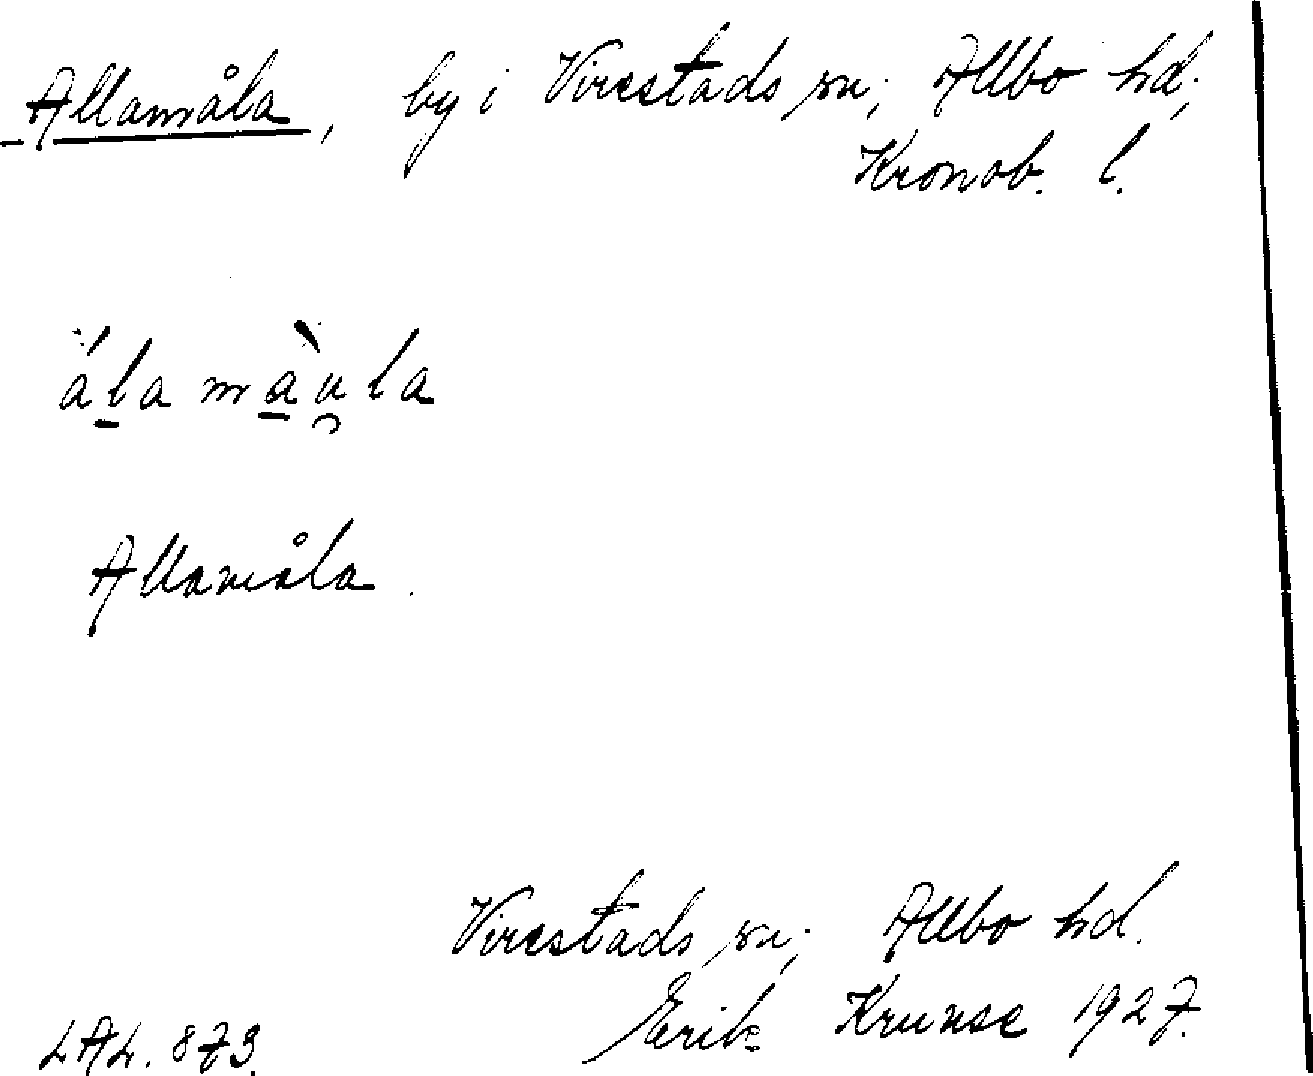 Allamåla, by i Virestads sn; Allbo hd;
Kronob. l.
ála màu̯la
Allamåla.
Virestads sn; Allbo hd.
Erik Krunse 1927.
LAL. 873.